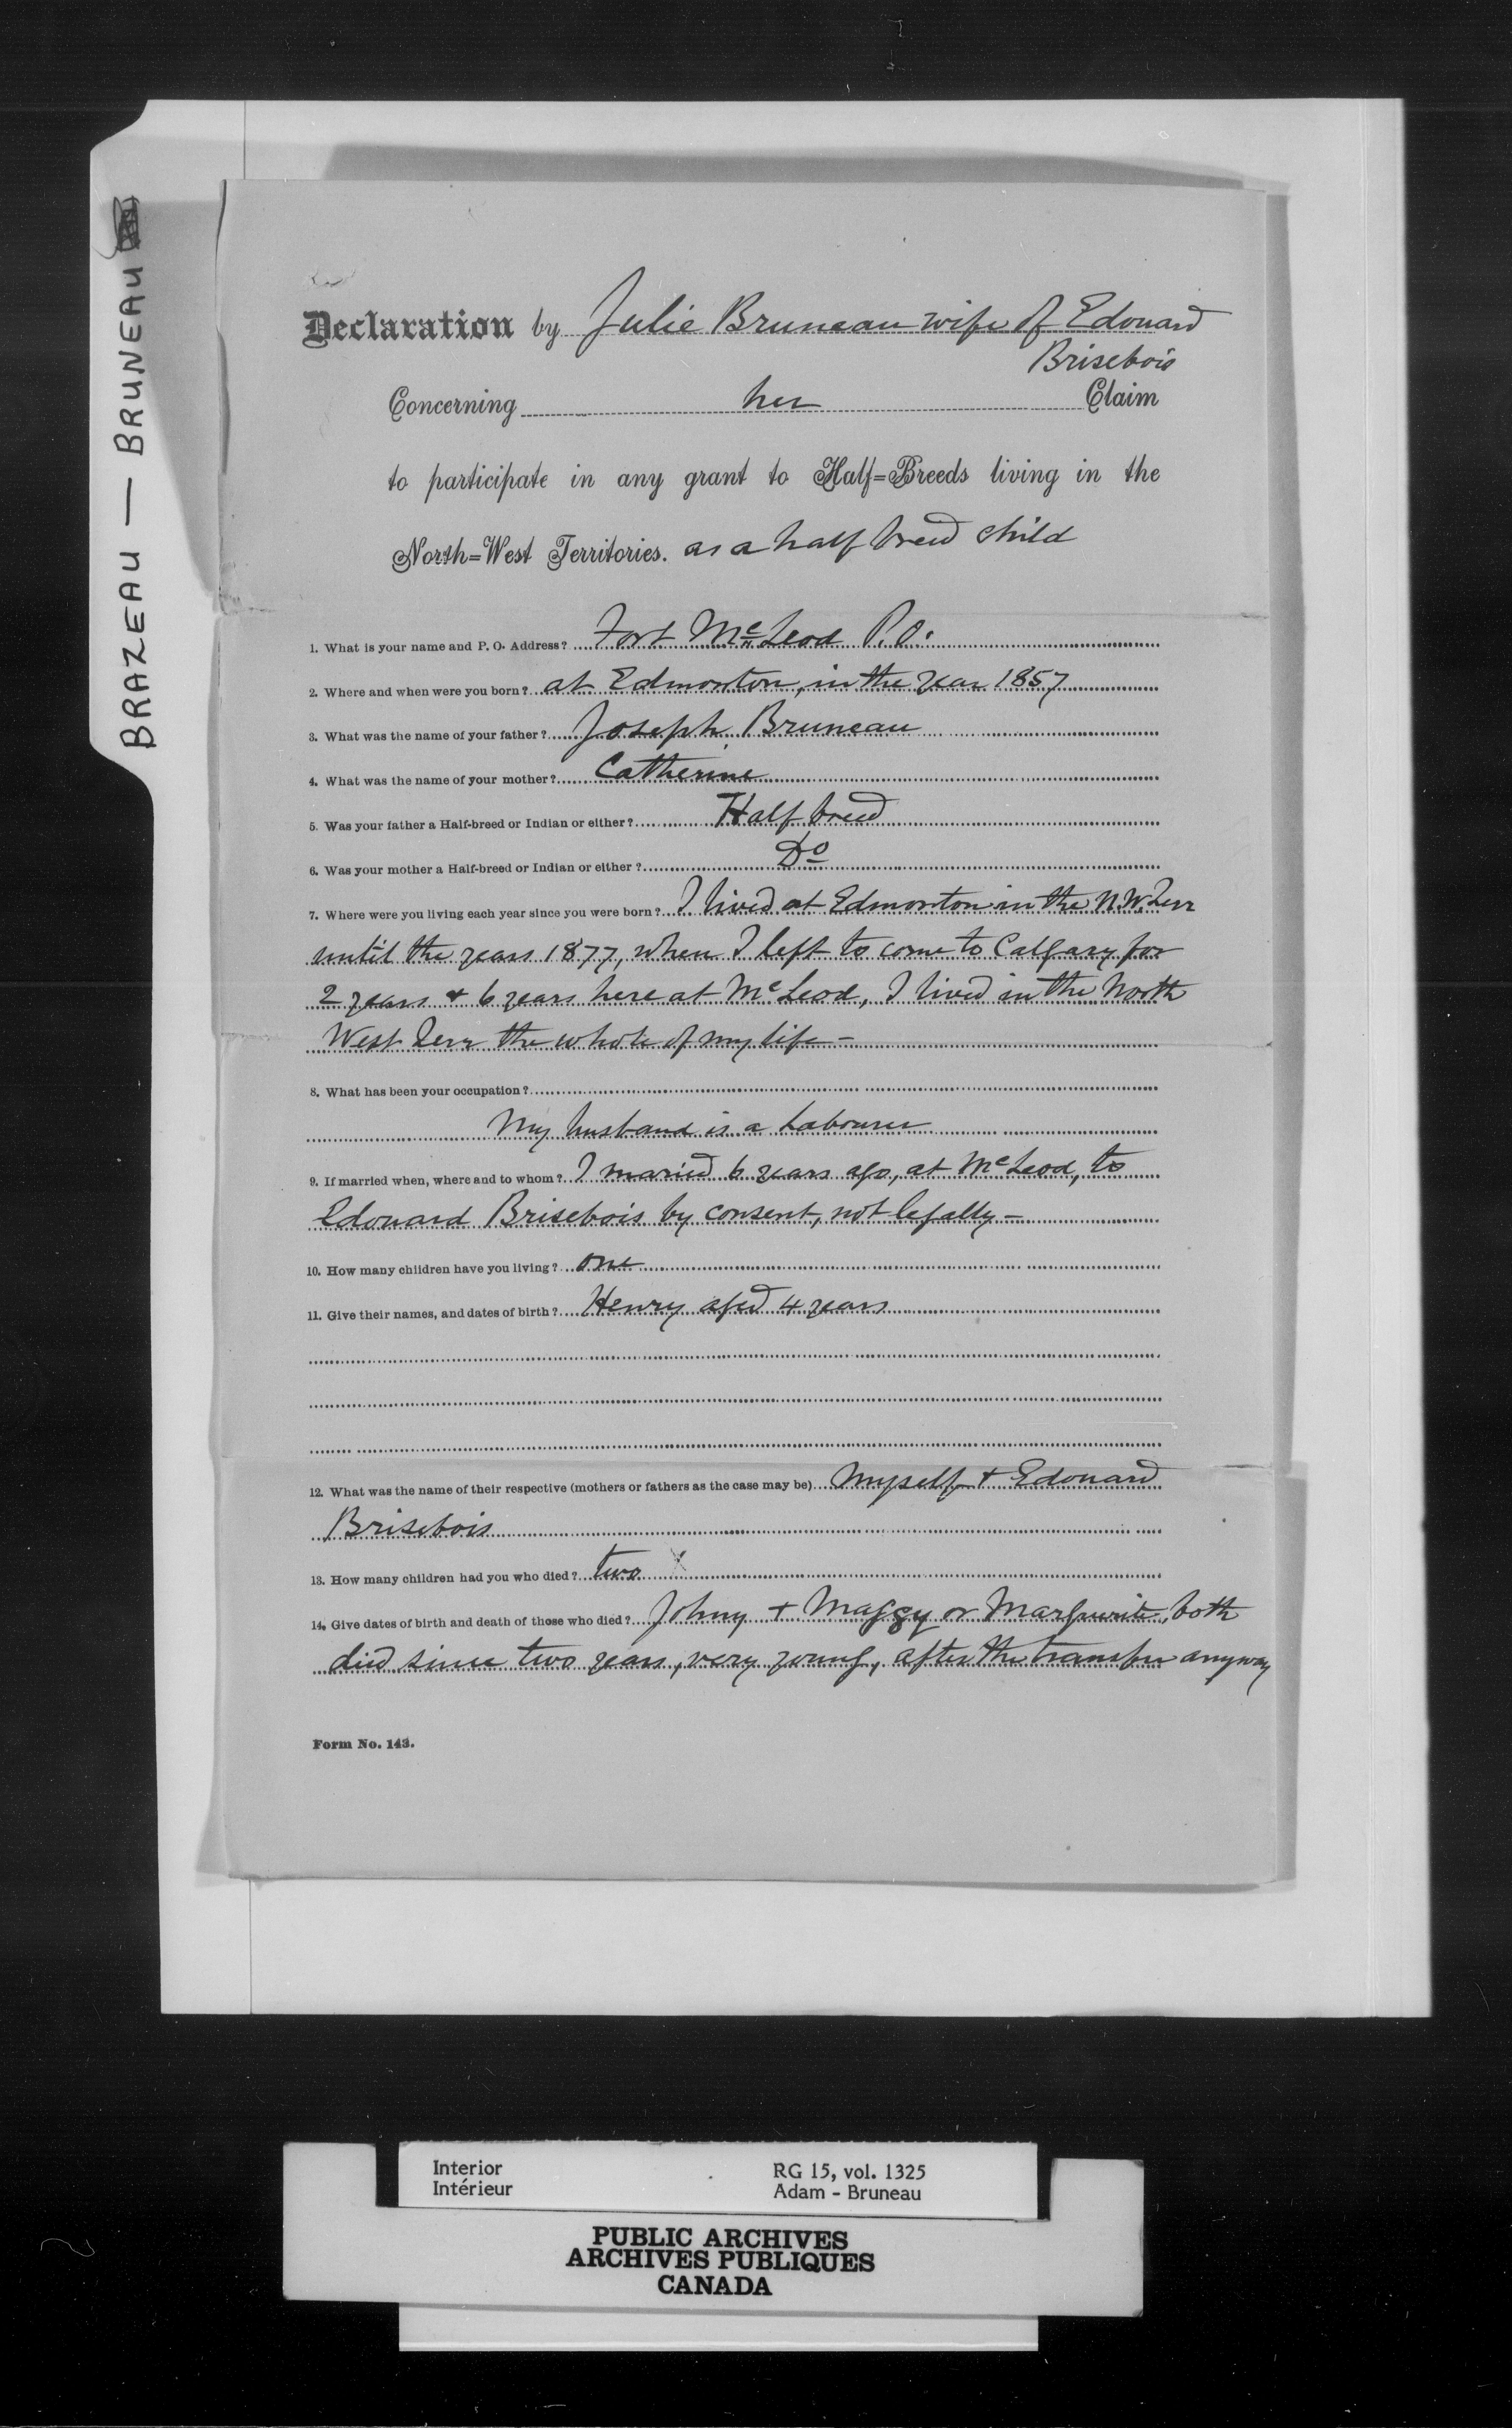 BRAZEAU — BRUNEAU
Declaration by Julie Bruneau wife of Edouard
Brisebois
Concerning her Claim
to participate in any grant to Half=Breeds living in the
North=West Territories. as a half breed child
1. What is your name and P. O. Address? Fort McLeod P.O.
2. Where and when were you born? at Edmonton, in the year 1857
3. What was the name of your father? Joseph Bruneau
4. What was the name of your mother? Catherine
5. Was your father a Half-breed or Indian or either? Half breed
6. Was your mother a Half-breed or Indian or either? Do
7. Where were you living each year since you were born? I lived at Edmonton in the N.W. Terr
until the years 1877, when I left to come to Calgary for
2 years + 6 years here at McLeod, I lived in the North
West Terr the whole of my life —
8. What has been your occupation?
My husband is a Labourer
9. If married when, where and to whom? I maried 6 years ago, at McLeod, to
Edouard Brisebois by consent, not legally —
10. How many children have you living? one
11. Give their names, and dates of birth? Henry aged 4 years
12. What was the name of their respective (mothers or fathers as the case may be) Myself + Edouard
Brisebois
13. How many children had you who died? two X
14. Give dates of birth and death of those who died? Johny + Maggy or Marguerite, both
died since two years, very young, after the transfer anyway
Form No. 143.
Interior RG 15, vol. 1325
Intérieur Adam - Bruneau
PUBLIC ARCHIVES
ARCHIVES PUBLIQUES
CANADA